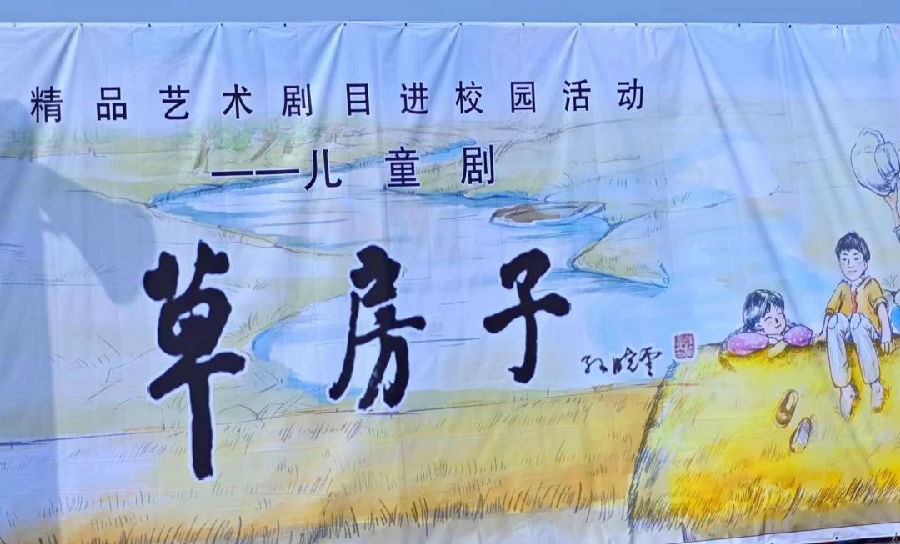 精品艺术剧目进校园活动
——儿童剧
草房子
孙晓云